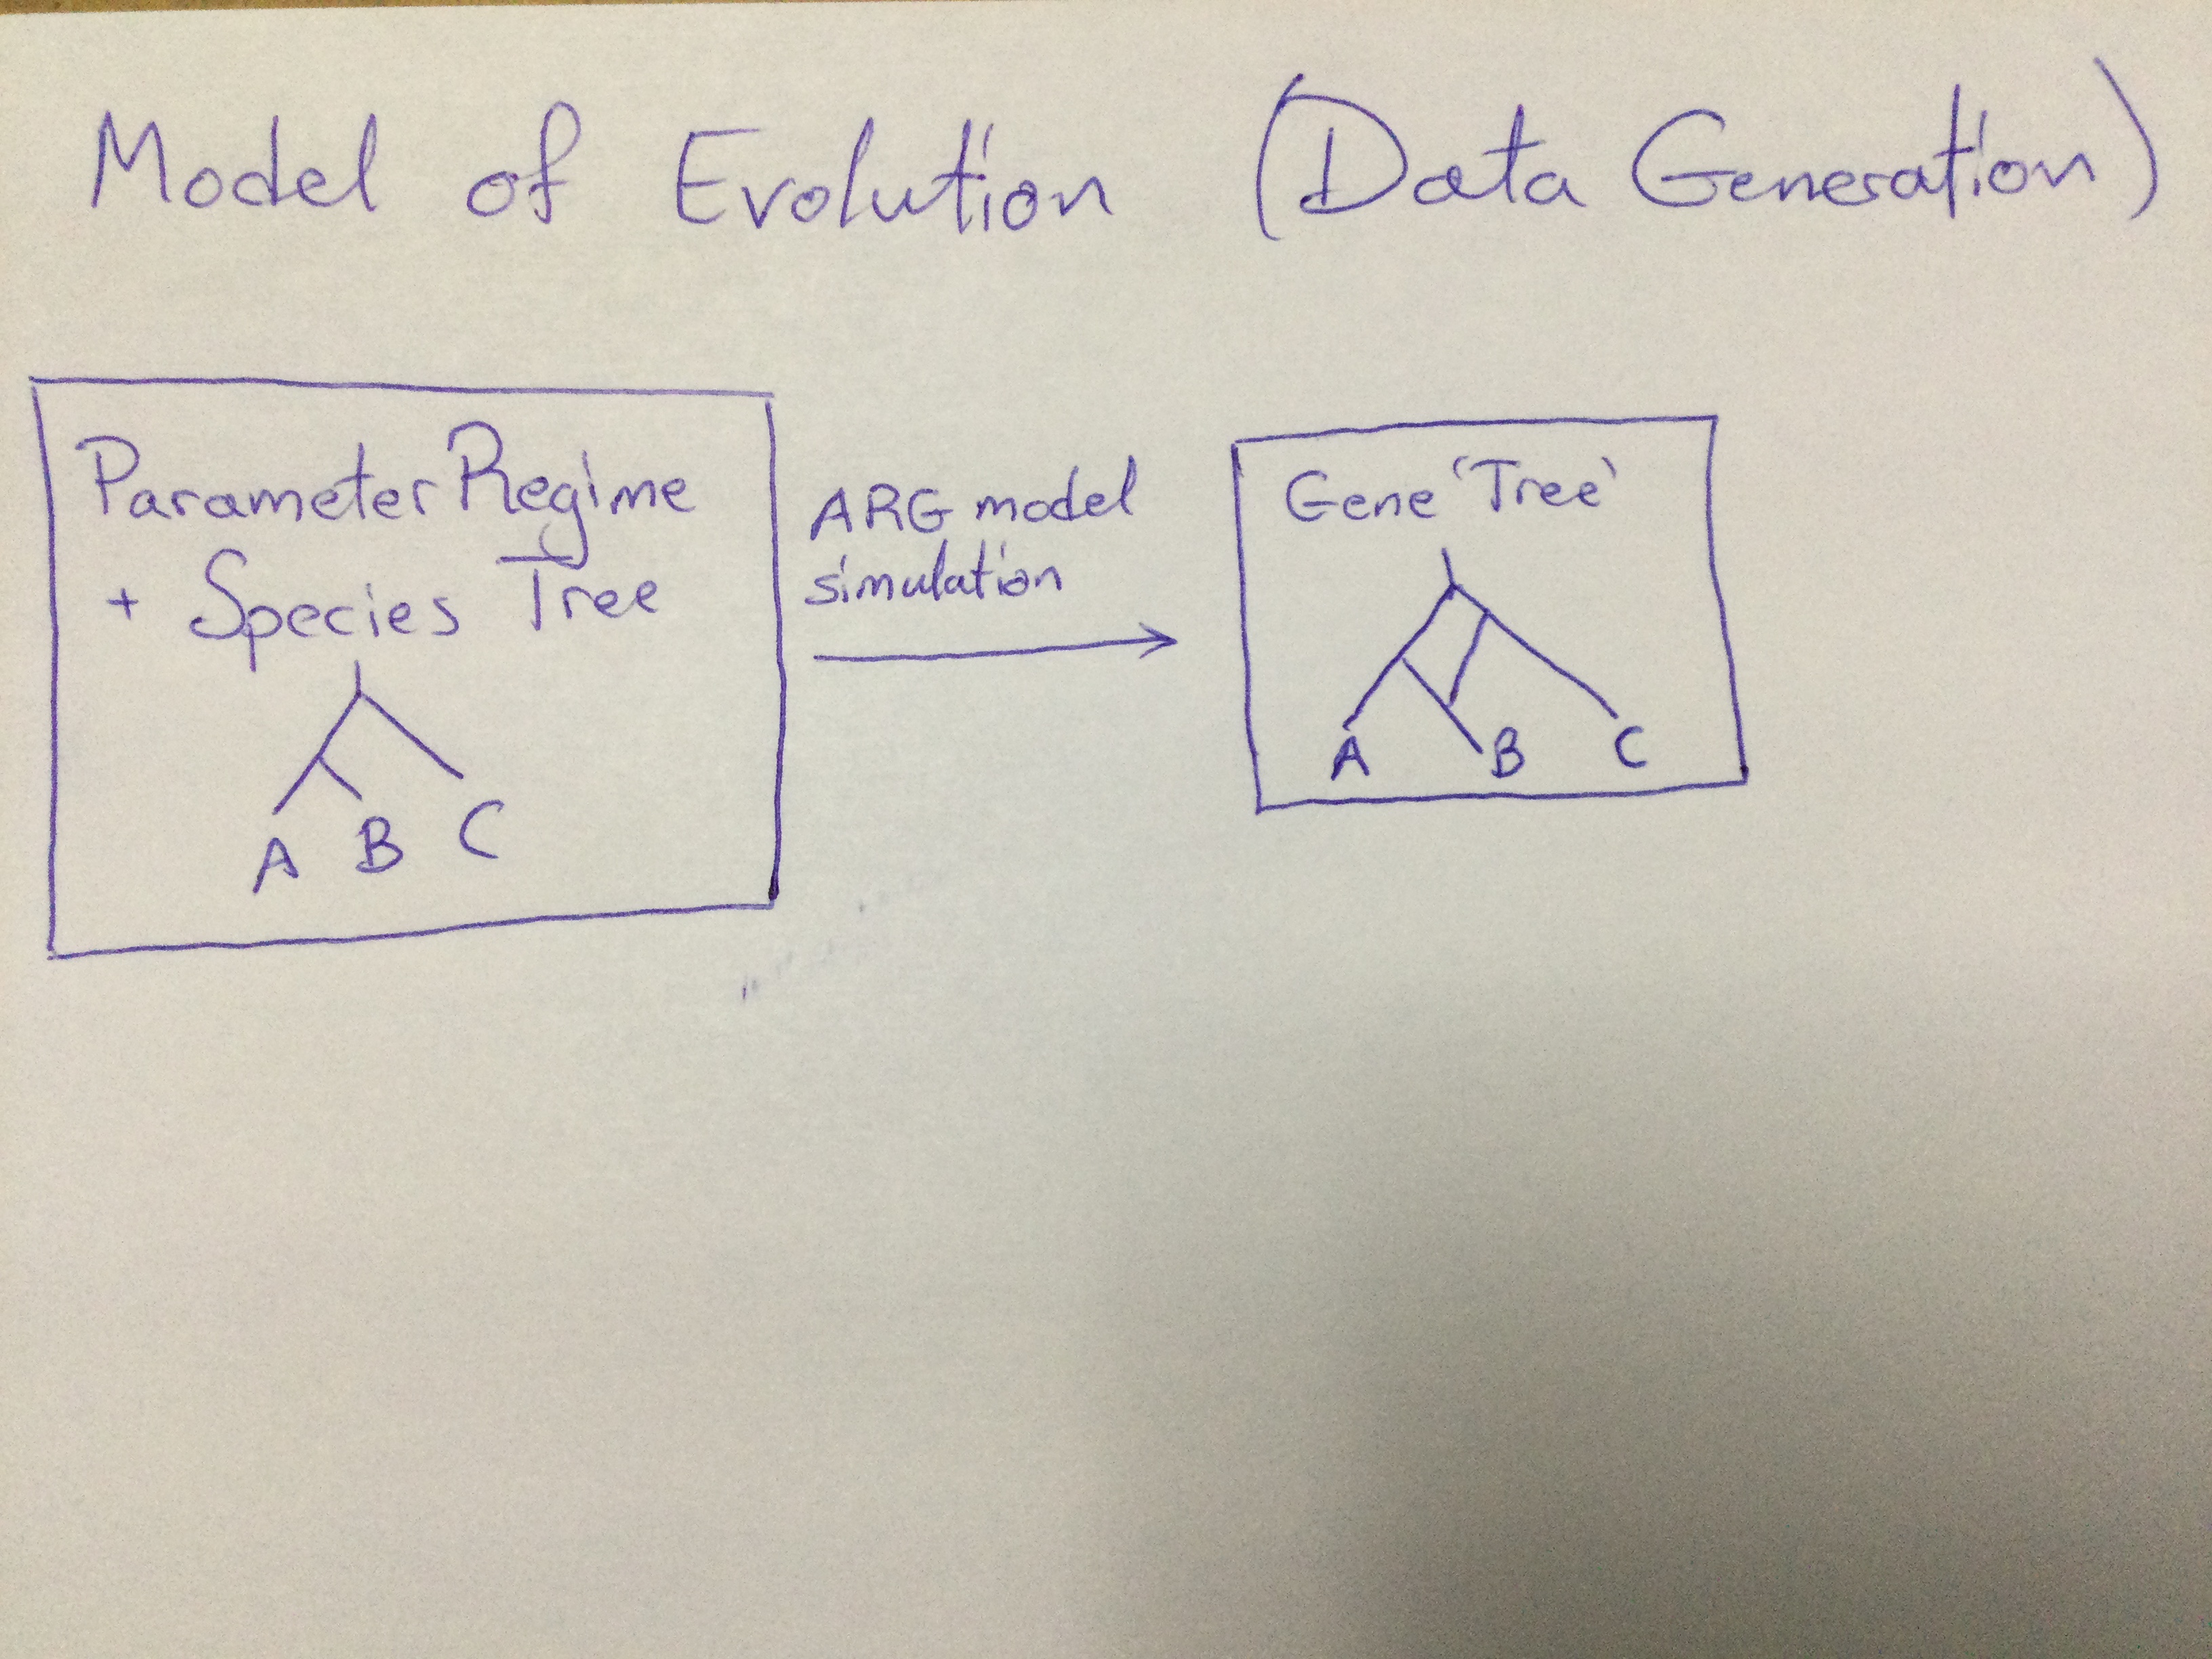 Model of Evolution (Data Generation)
Parameter Regime
+ Species Tree
A B C
ARG model
simulation
Gene 'Tree'
A B C